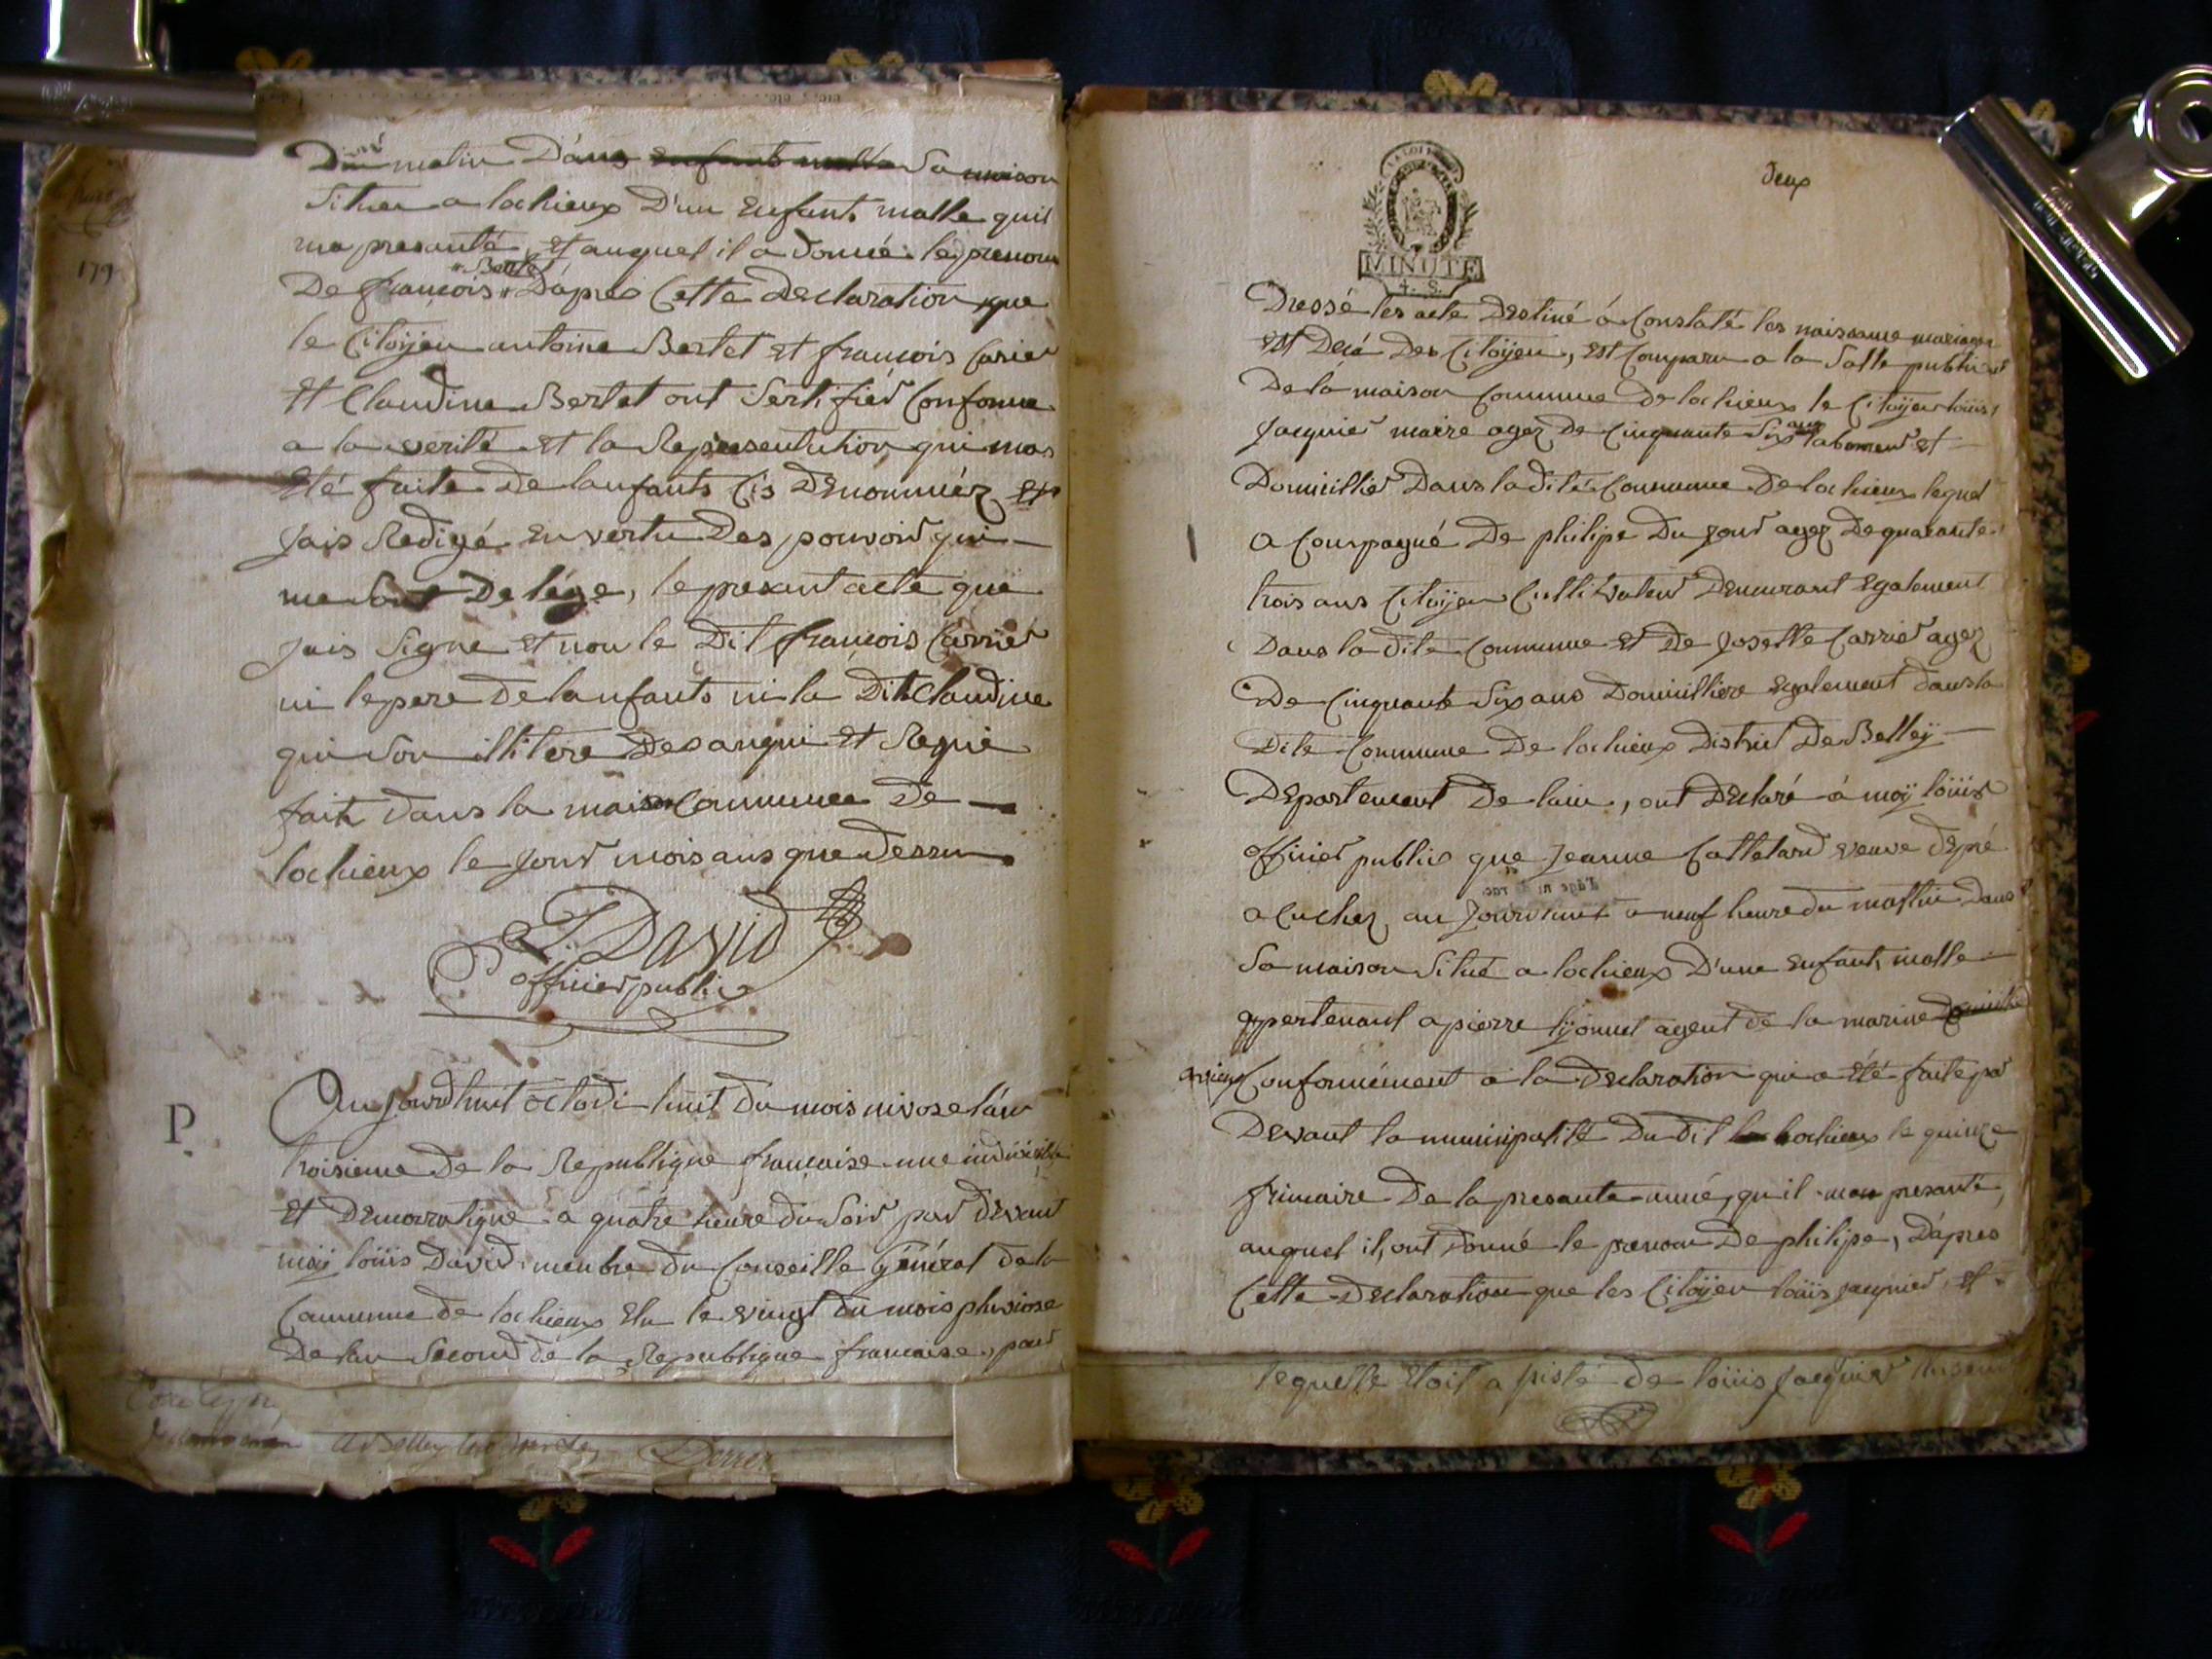 Du matin Dans enfants malle Sa maison
Situer a lochieux D'un enfants malle quil
ma presanté, et auquel il a donné le prenom
De françois " Bertet " D'apres Cette declaration que
le Citoÿen antoine Bertet et françois Carier
Et Claudine Bertet ont Sertifier Conforme
a la verité et la Representution qui mas
Eté faite de lanfants Cis Denommér et
Jais Redigé en vertu Des pouvoir qui
me sont Delége, le presant acte que
Jais Signe et non le Dit françois Carrier
ni le pere de lanfants ni la Dite Claudine
qui Son illitere de
fait dans la maison Commune De
lochieux le Jour mois ans que dessu
179
David
officier public
P.
Aujourdhuit octodi huit du mois nivose lan
troisieme de la Republique française une indivisible
et Democratique a quatre heure du Soir par devant
moÿ loüis David membre du Conseille Général de la
Commune de lochieux Elu le vingt du mois pluviose
De lan Second de la Republique francaise, pour
deux
LA LOI
MINUTE
4. S.
Dressé les acte Destiné á Constaté les naissance mariage
est Décé Des Citoÿen, est Comparu a la Salle publique
De la maison Commune de lochieux le Citoÿen loüis
Jacquier maire agez de Cinquante Six ans laboureur et
Domicillier Dans la dite Commune de lochieux lequel
a Compagné De philipe Du Jour agez De quarante
trois ans Citoÿen Cultivateur Demeurant Egalement
Dans la dite Commune et de Josette Carrier agez
De Cinquante Six ans Domicilliere egalement dans la
Dite Commune De lochieux District De Belleÿ
Departement De lain, ont Declaré á moÿ loüis
officier public que Jeanne Catteland veuve
acuchez au Jourdhuit a neuf heure du mattin Dans
Sa maison Situé a lochieux D'une enfants malle
appertenant a pierre lÿonnet agent de la marine
Conformément a la Declaration qui a été faite par
Devant la municipalité Du dit lochieux le quinze
frimaire De la presante anné, quil mon presanté,
auquel il, ont donné le prenom De philipe, D'apres
Cette Declaration que les Citoÿen loüis Jacquier, et
lequelle Etoit a sisté de loüis Jacquier